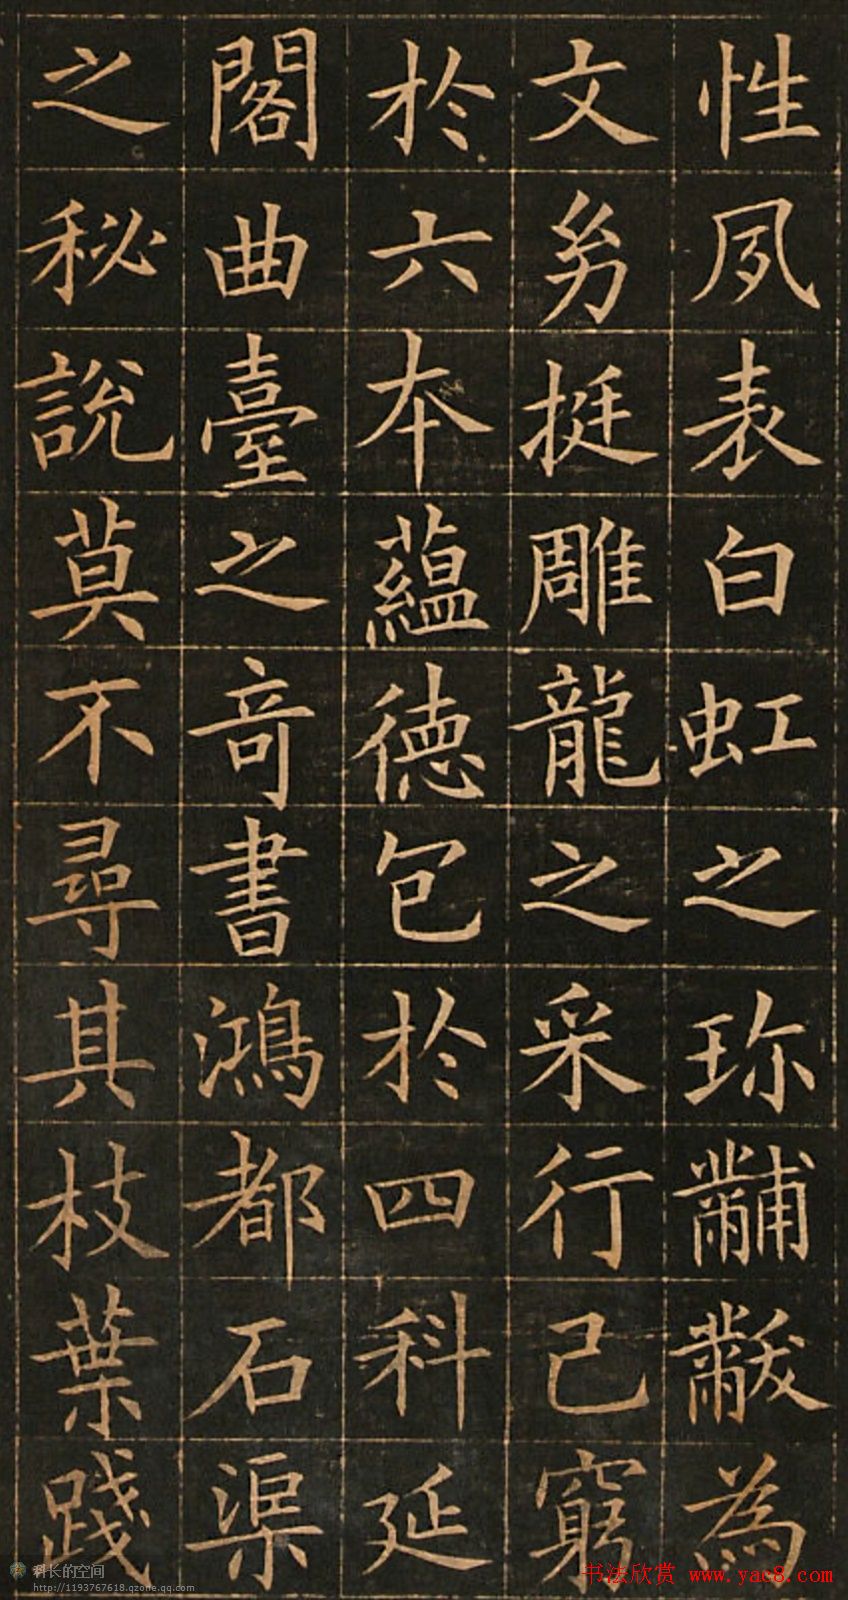 性夙表白虹之珎黼黻為
文幼挺雕龍之采行己窮
於六本蘊徳包於四科延
閣曲臺之奇書鴻都石渠
之秘說莫不尋其枝葉踐
科长的空间
http://1193767618.qzone.qq.com
书法欣赏 www.yac8.com